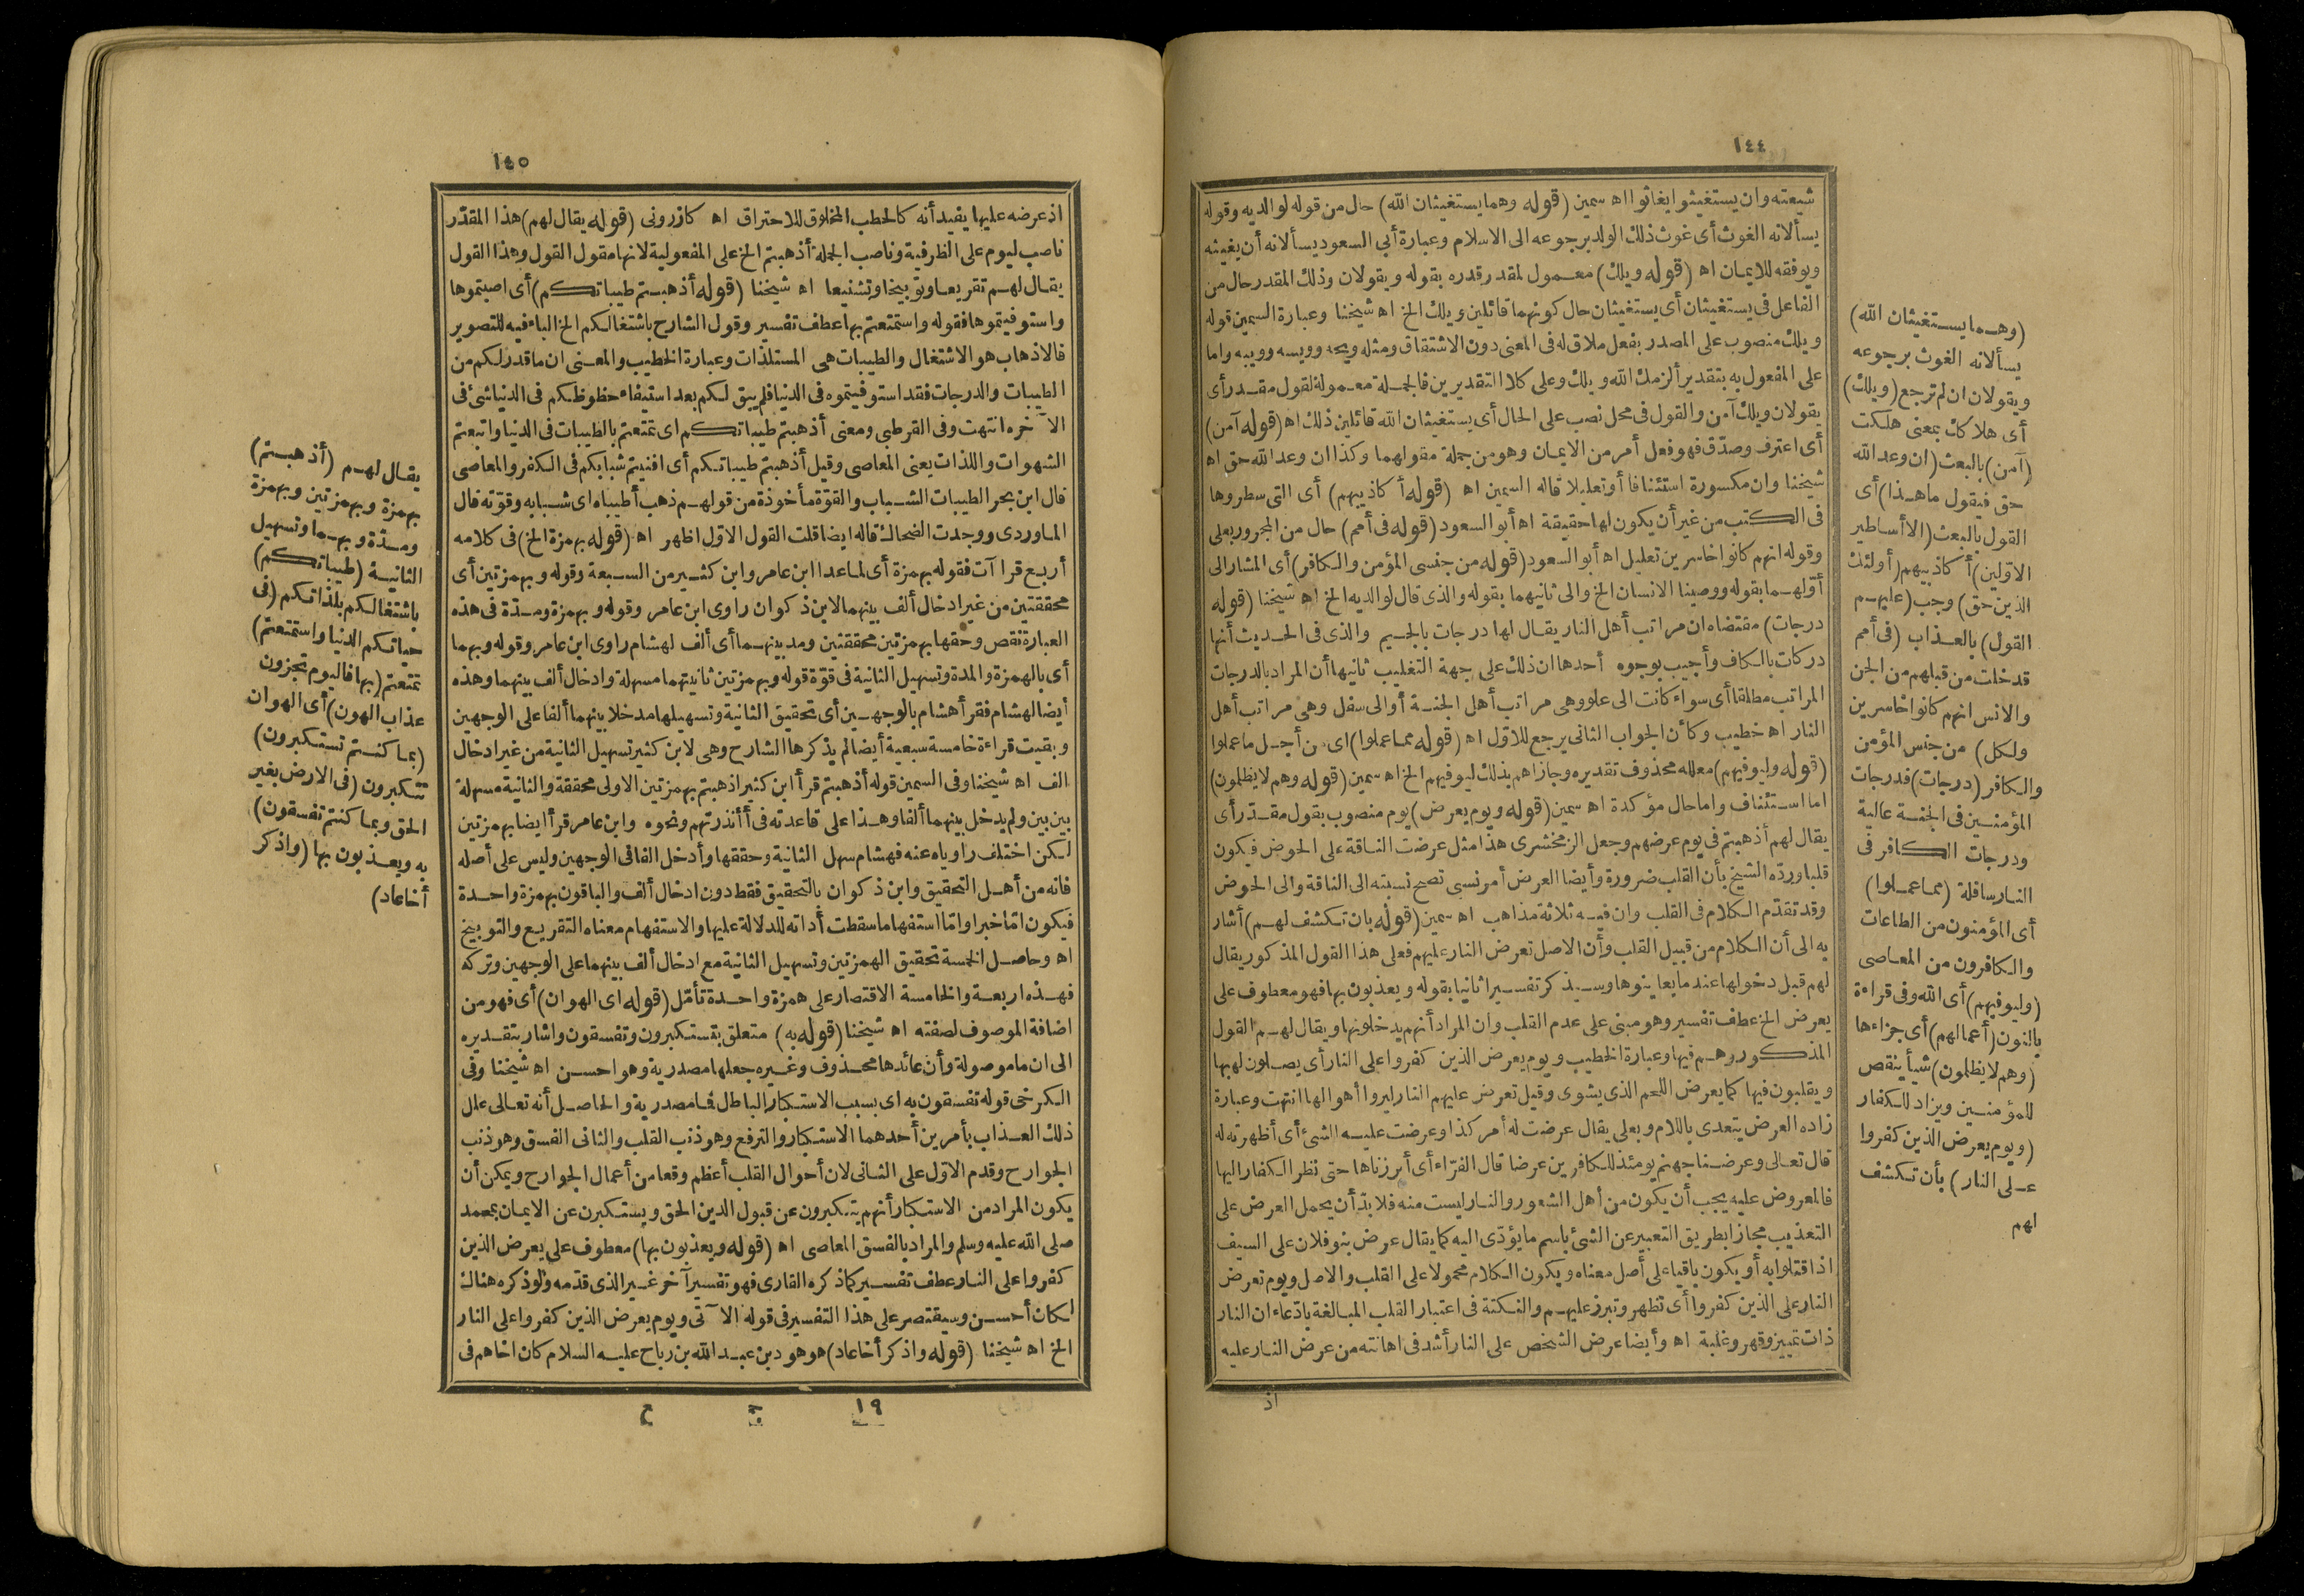 ١٤٤
شيعته وان يستغيثوا يغاثوا اه سمين (قوله وهما يستغيثان الله) حال من قوله لوالديه وقوله
يسألانه الغوث أى غوث ذلك الولد برجوعه الى الاسلام وعبارة أبى السعود يسألانه أن يغيثه
ويوفقه للايمان اه (قوله ويلك) معمول لمقدر قدره بقوله ويقولان وذلك المقدر حال من
الفاعل فى يستغيثان أى يستغيثان حال كونهما قائلين ويلك الخ اه شيخنا وعبارة السمين قوله
ويلك منصوب على المصدر بفعل ملاق له فى المعنى دون الاشتقاق ومثله ويحه وويسه وويبه واما
على المفعول به بتقدير ألزمك الله ويلك وعلى كلا التقديرين فالجملة معمولة لقول مقدر أى
يقولان ويلك آمن والقول فى محل نصب على الحال أى يستغيثان الله قائلين ذلك اه (قوله آمن)
أى اعترف وصدّق فهو فعل أمر من الايمان وهو من جملة مقولهما وكذا ان وعد الله حق اه
شيخنا وان مكسورة استئنافا أو تعليلا قاله السمين اه (قوله أكاذيبهم) أى التى سطروها
فى الكتب من غير أن يكون لها حقيقة اه أبو السعود (قوله فى أمم) حال من المجرور بعلى
وقوله انهم كانوا خاسرين تعليل اه أبو السعود (قوله من جنسى المؤمن والكافر) أى المشار الى
أوّلهما بقوله ووصينا الانسان الخ والى ثانيهما بقوله والذى قال لوالديه الخ اه شيخنا (قوله
درجات) مقتضاه ان مراتب أهل النار يقال لها درجات بالجيم والذى فى الحديث أنها
دركات بالكاف وأجيب بوجوه أحدها ان ذلك على جهة التغليب ثانيها أن المراد بالدرجات
المراتب مطلقا أى سواء كانت الى علو وهى مراتب أهل الجنة أو الى سفل وهى مراتب أهل
النار اه خطيب وكأن الجواب الثانى يرجع للاوّل اه (قوله مما عملوا) اى من أجل ما عملوا
(قوله وليوفيهم) معلله محذوف تقديره وجازاهم بذلك ليوفيهم الخ اه سمين (قوله وهم لا يظلمون)
اما استئناف واما حال مؤكدة اه سمين (قوله ويوم يعرض) يوم منصوب بقول مقدّر أى
يقال لهم أذهبتم فى يوم عرضهم وجعل الزمخشرى هذا مثل عرضت الناقة على الحوض فيكون
قلبا وردّه الشيخ بأن القلب ضرورة وأيضا العرض أمر نسبى تصح نسبته الى الناقة والى الحوض
وقد تقدّم الكلام فى القلب وان فيه ثلاثة مذاهب اه سمين (قوله بان تكشف لهم) أشار
به الى أن الكلام من قبيل القلب وأن الاصل تعرض النار عليهم فعلى هذا القول المذكور يقال
لهم قبل دخولها عند ما يعاينوها وسيذكر تفسيرا ثانيا بقوله ويعذبون بها فهو معطوف على
يعرض الخ عطف تفسير وهو مبنى على عدم القلب وان المراد أنهم يدخلونها ويقال لهم القول
المذكور وهم فيها وعبارة الخطيب ويوم يعرض الذين كفروا على النار أى يصلون لهبها
ويقلبون فيها كما يعرض اللحم الذى يشوى وقيل تعرض عليهم النار ليروا أهوالها انتهت وعبارة
زاده العرض يتعدى باللام وبعلى يقال عرضت له أمر كذا وعرضت عليه الشئ أى أظهرته له
قال تعالى وعرضنا جهنم يومئذ للكافرين عرضا قال الفرّاء أى أبرزناها حتى نظر الكفار اليها
فالمعروض عليه يجب أن يكون من أهل الشعور والنار ليست منه فلا بدّ أن يحمل العرض على
التعذيب مجازا بطريق التعبير عن الشئ باسم ما يؤدّى اليه كما يقال عرض بنو فلان على السيف
اذا قتلوا به أو يكون باقيا على أصل معناه ويكون الكلام محمولا على القلب والاصل ويوم تعرض
النار على الذين كفروا أى تظهر وتبرز عليهم والنكتة فى اعتبار القلب المبالغة بادّعاء ان النار
ذات تمييز وقهر وغلبة اه وأيضا عرض الشخص على النار أشد فى اهانته من عرض النار عليه
اذ
(وهما يستغيثان الله)
يسألانه الغوث برجوعه
ويقولان ان لم ترجع (ويلك)
أى هلاكك بمعنى هلكت
(آمن) بالبعث (ان وعد الله
حق فيقول ما هذا) أى
القول بالبعث (الا أساطير
الاوّلين) أكاذيبهم (أولئك
الذين حق) وجب (عليهم
القول) بالعذاب (فى أمم
قد خلت من قبلهم من الجن
والانس انهم كانوا خاسرين
ولكل) من جنس المؤمن
والكافر (درجات) فدرجات
المؤمنين فى الجنة عالية
ودرجات الكافر فى
النار سافلة (مما عملوا)
أى المؤمنون من الطاعات
والكافرون من المعاصى
(وليوفيهم) أى الله وفى قراءة
بالنون (أعمالهم) أى جزاءها
(وهم لا يظلمون) شيأ ينقص
للمؤمنين ويزاد للكفار
(ويوم يعرض الذين كفروا
على النار) بأن تكشف
لهم
١٤٥
اذ عرضه عليها يفيد أنه كالحطب المخلوق للاحتراق اه كازرونى (قوله يقال لهم) هذا المقدّر
ناصب ليوم على الظرفية وناصب لجملة أذهبتم الخ على المفعولية لانها مقول القول وهذا القول
يقال لهم تقريعا وتوبيخا وتشنيعا اه شيخنا (قوله أذهبتم طيباتكم) أى اصبتموها
واستوفيتموها فقوله واستمتعتم بها عطف تفسير وقول الشارح باشتغالكم الخ الباء فيه للتصوير
فالاذهاب هو الاشتغال والطيبات هى المستلذات وعبارة الخطيب والمعنى ان ما قدر لكم من
الطيبات والدرجات فقد استوفيتموه فى الدنيا فلم يبق لكم بعد استيفاء حظوظكم فى الدنيا شئ فى
الآخره انتهت وفى القرطبى ومعنى أذهبتم طيباتكم اى تمتعتم بالطيبات فى الدنيا واتبعتم
الشهوات واللذات يعنى المعاصى وقيل أذهبتم طيباتكم أى افنيتم شبابكم فى الكفر والمعاصى
قال ابن بحر الطيبات الشباب والقوّة مأخوذة من قولهم ذهب أطيباه اى شبابه وقوّته قال
الماوردى ووجدت الضحاك قاله ايضا قلت القول الاوّل اظهر اه (قوله بهمزة الخ) فى كلامه
أربع قرا آت فقوله بهمزة أى لماعدا ابن عامر وابن كثير من السبعة وقوله وبهمزتين أى
محققتين من غير ادخال ألف بينهما لابن ذكوان راوى ابن عامر وقوله وبهمزة ومدّة فى هذه
العبارة نقص وحقها بهمزتين محققتين ومد بينهما أى ألف لهشام راوى ابن عامر وقوله وبهما
أى بالهمزة والمدة وتسهيل الثانية فى قوّة قوله وبهمزتين ثانيتهما مسهلة وادخال ألف بينهما وهذه
أيضا لهشام فقرأ هشام بالوجهين أى تحقيق الثانية وتسهيلها مدخلا بينهما ألفا على الوجهين
وبقيت قراءة خامسة سبعية أيضا لم يذكرها الشارح وهى لابن كثير تسهيل الثانية من غير ادخال
الف اه شيخنا وفى السمين قوله أذهبتم قرأ ابن كثير اذهبتم بهمزتين الاولى محققة والثانية مسهلة
بين بين ولم يدخل بينهما ألفا وهذا على قاعدته فى أأنذرتهم ونحوه وابن عامر قرأ ايضا بهمزتين
لكن اختلف راوياه عنه فهشام سهل الثانية وحققها وأدخل الفا فى الوجهين وليس على أصله
فانه من أهل التحقيق وابن ذكوان بالتحقيق فقط دون ادخال ألف والباقون بهمزة واحدة
فيكون امّا خبرا وامّا استفهاما سقطت أداته للدلالة عليها والاستفهام معناه التقريع والتوبيخ
اه وحاصل الخمسة تحقيق الهمزتين وتسهيل الثانية مع ادخال ألف بينهما على الوجهين وتركه
فهذه اربعة والخامسة الاقتصار على همزة واحدة تأمّل (قوله اى الهوان) أى فهو من
اضافة الموصوف لصفته اه شيخنا (قوله به) متعلق بتستكبرون وتفسقون واشار بتقديره
الى ان ما موصولة وأن عائدها محذوف وغيره جعلها مصدرية وهو احسن اه شيخنا وفى
الكرخى قوله تفسقون به اى بسبب الاستكبار الباطل فما مصدرية والحاصل أنه تعالى علل
ذلك العذاب بأمرين أحدهما الاستكبار والترفع وهو ذنب القلب والثانى الفسق وهو ذنب
الجوارح وقدم الاوّل على الثانى لان أحوال القلب أعظم وقعا من أعمال الجوارح ويمكن أن
يكون المراد من الاستكبار أنهم يتكبرون عن قبول الدين الحق ويستكبرن عن الايمان بمحمد
صلى الله عليه وسلم والمراد بالفسق المعاصى اه (قوله ويعذبون بها) معطوف على يعرض الذين
كفروا على النار عطف تفسير كما ذكره القارى فهو تفسير آخر غير الذى قدّمه ولو ذكره هناك
لكان أحسن وسيقتصر على هذا التفسير فى قوله الآتى ويوم يعرض الذين كفروا على النار
الخ اه شيخنا (قوله واذكر أخا عاد) هو هود بن عبد الله بن رباح عليه السلام كان اخاهم فى
١٩ ج ع
يقال لهم (أذهبتم)
بهمزة وبهمزتين وبهمزة
ومدّة وبهما وتسهيل
الثانية (طيباتكم)
باشتغالكم بلذاتكم (فى
حياتكم الدنيا واستمتعتم)
تمتعتم (بها فاليوم تجزون
عذاب الهون) أى الهوان
(بما كنتم تستكبرون)
تتكبرون (فى الارض بغير
الحق وبما كنتم تفسقون)
به ويعذبون بها (واذكر
أخا عاد)